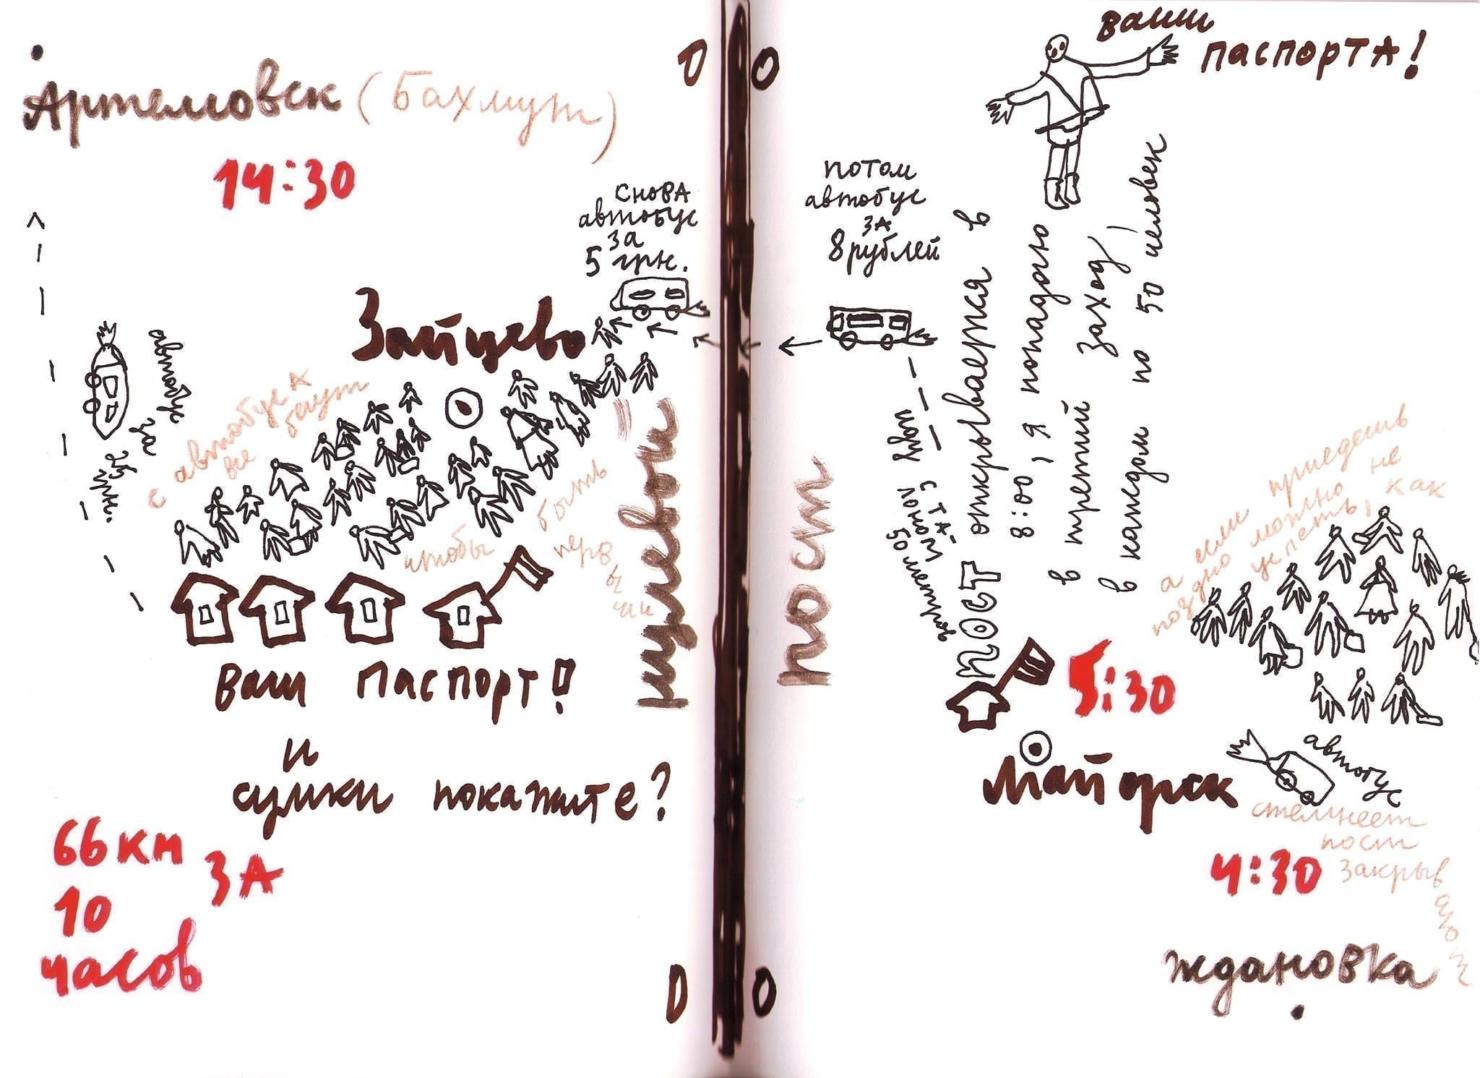 Артемовск (Бахмут)
14:30
снова
автобус
за
5 грн.
Зайцево
автобус
за
с автобуса
все бегут
чтобы быть
первыми
Ваш паспорт!
и
сумки покажите?
66 км
за
10
часов
нулевой
пост
0
0
0
0
ваши
паспорта!
потом
автобус
за
8 рублей
пост открывается в
8:00, я попадаю
в третий заход,
в каждом по 50 человек
с та-
лоном
50 метров
5:30
Майорск
а если приедешь
поздно можно не
успеть, как
автобус
стемнеет
пост
закрыв
4:30
Ждановка